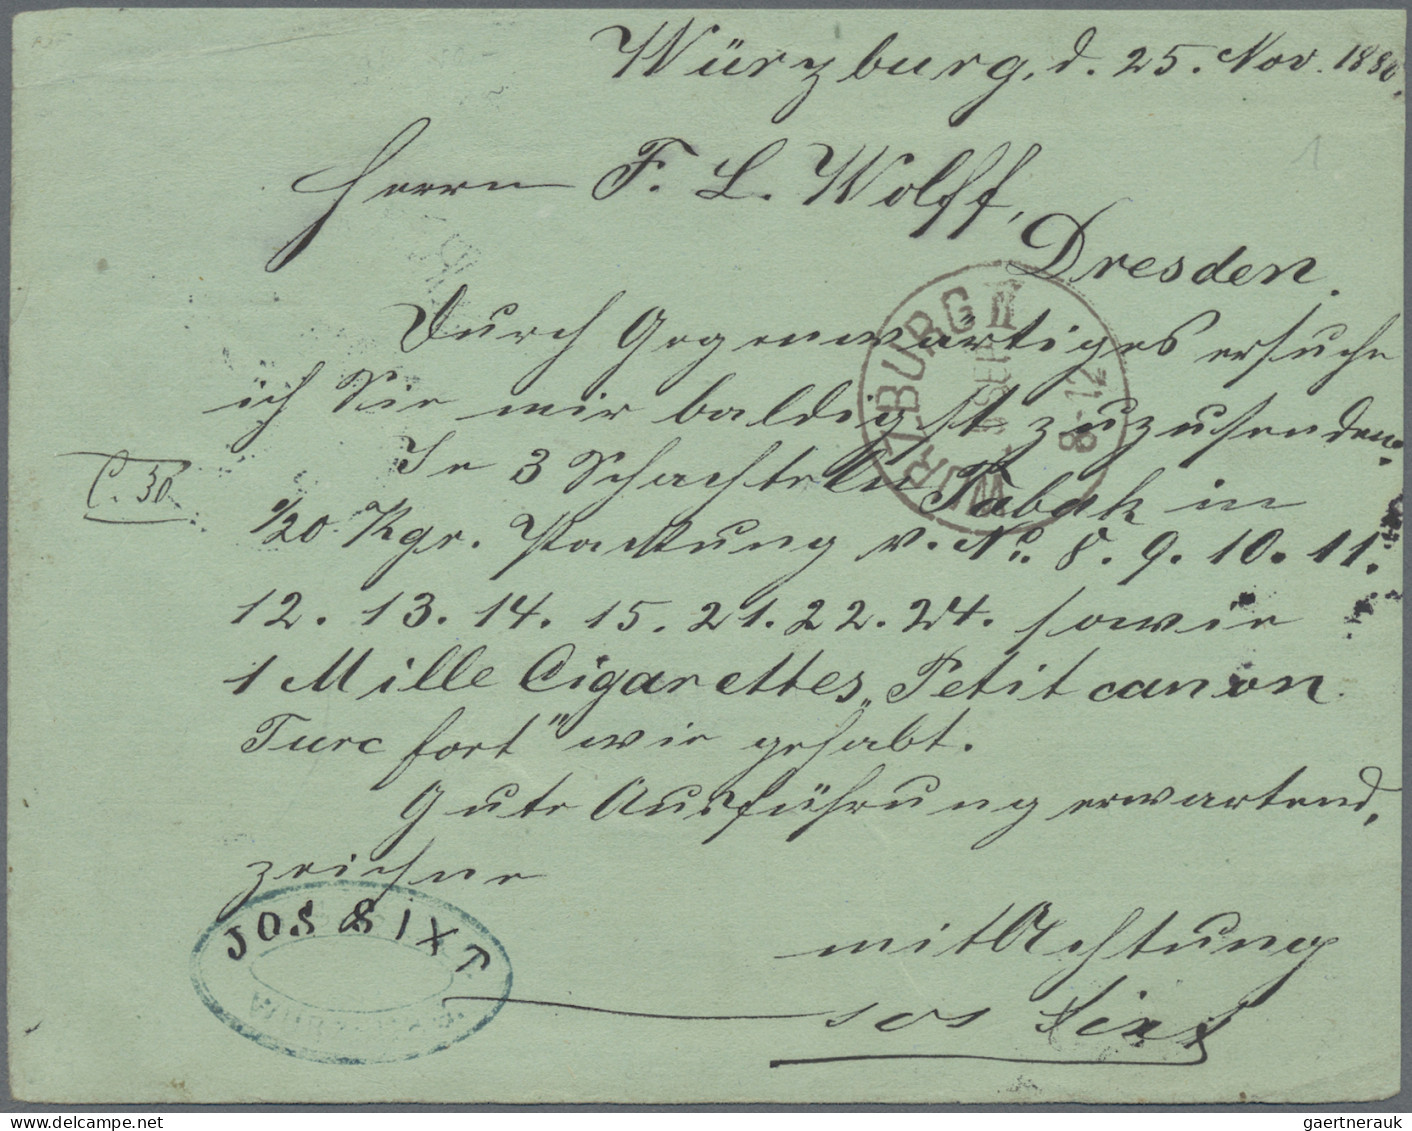 Würzburg, d. 25. Nov. 1880.
1
Herrn F. L. Wolff,
Dresden.
Durch Gegenwärtiges ersuche
ich Sie mir baldigst zuzusenden.
Je 3 Schachteln Tabak in
C. 30.
1/20 Kgr. Packung v. No. 8. 9. 10. 11.
12. 13. 14. 15. 21. 22. 24. sowie
1 Mille Cigarettes „Petit canon
Turc fort" wie gehabt.
Gute Ausführung erwartend,
zeichne
mit Achtung
Jos Sixt
JOS SIXT
WÜRZBURG.
WÜRZBURG II
8-12
gaertnerauk